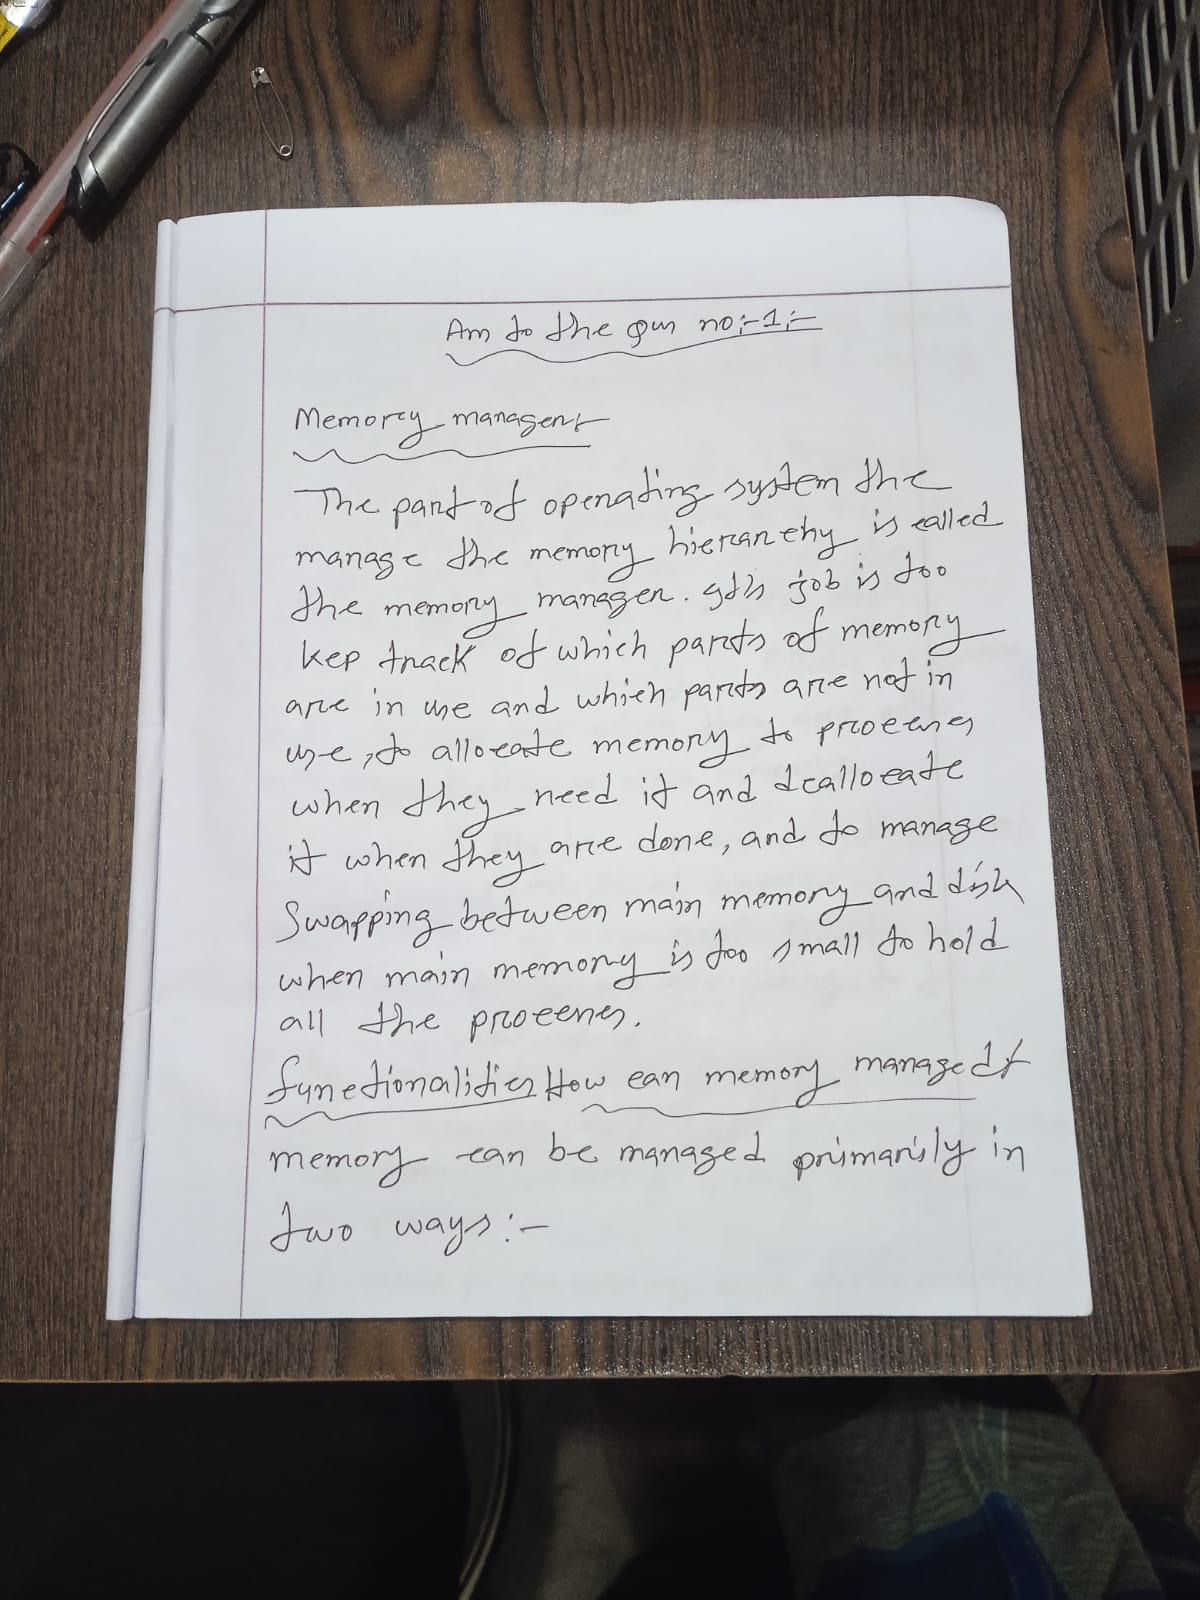 Ans to the Qus no:-1:-
Memory managent
The part of operating system the
manage the memory hierarchy is called
the memory manager. Its job is too
kep track of which parts of memory
are in use and which parts are not in
use, to allocate memory to processes
when they need it and deallocate
it when they are done, and to manage
Swapping between main memory and disk
when main memory is too small to hold
all the processes.
functionalities How can memory managed
memory can be managed primarily in
two ways:-